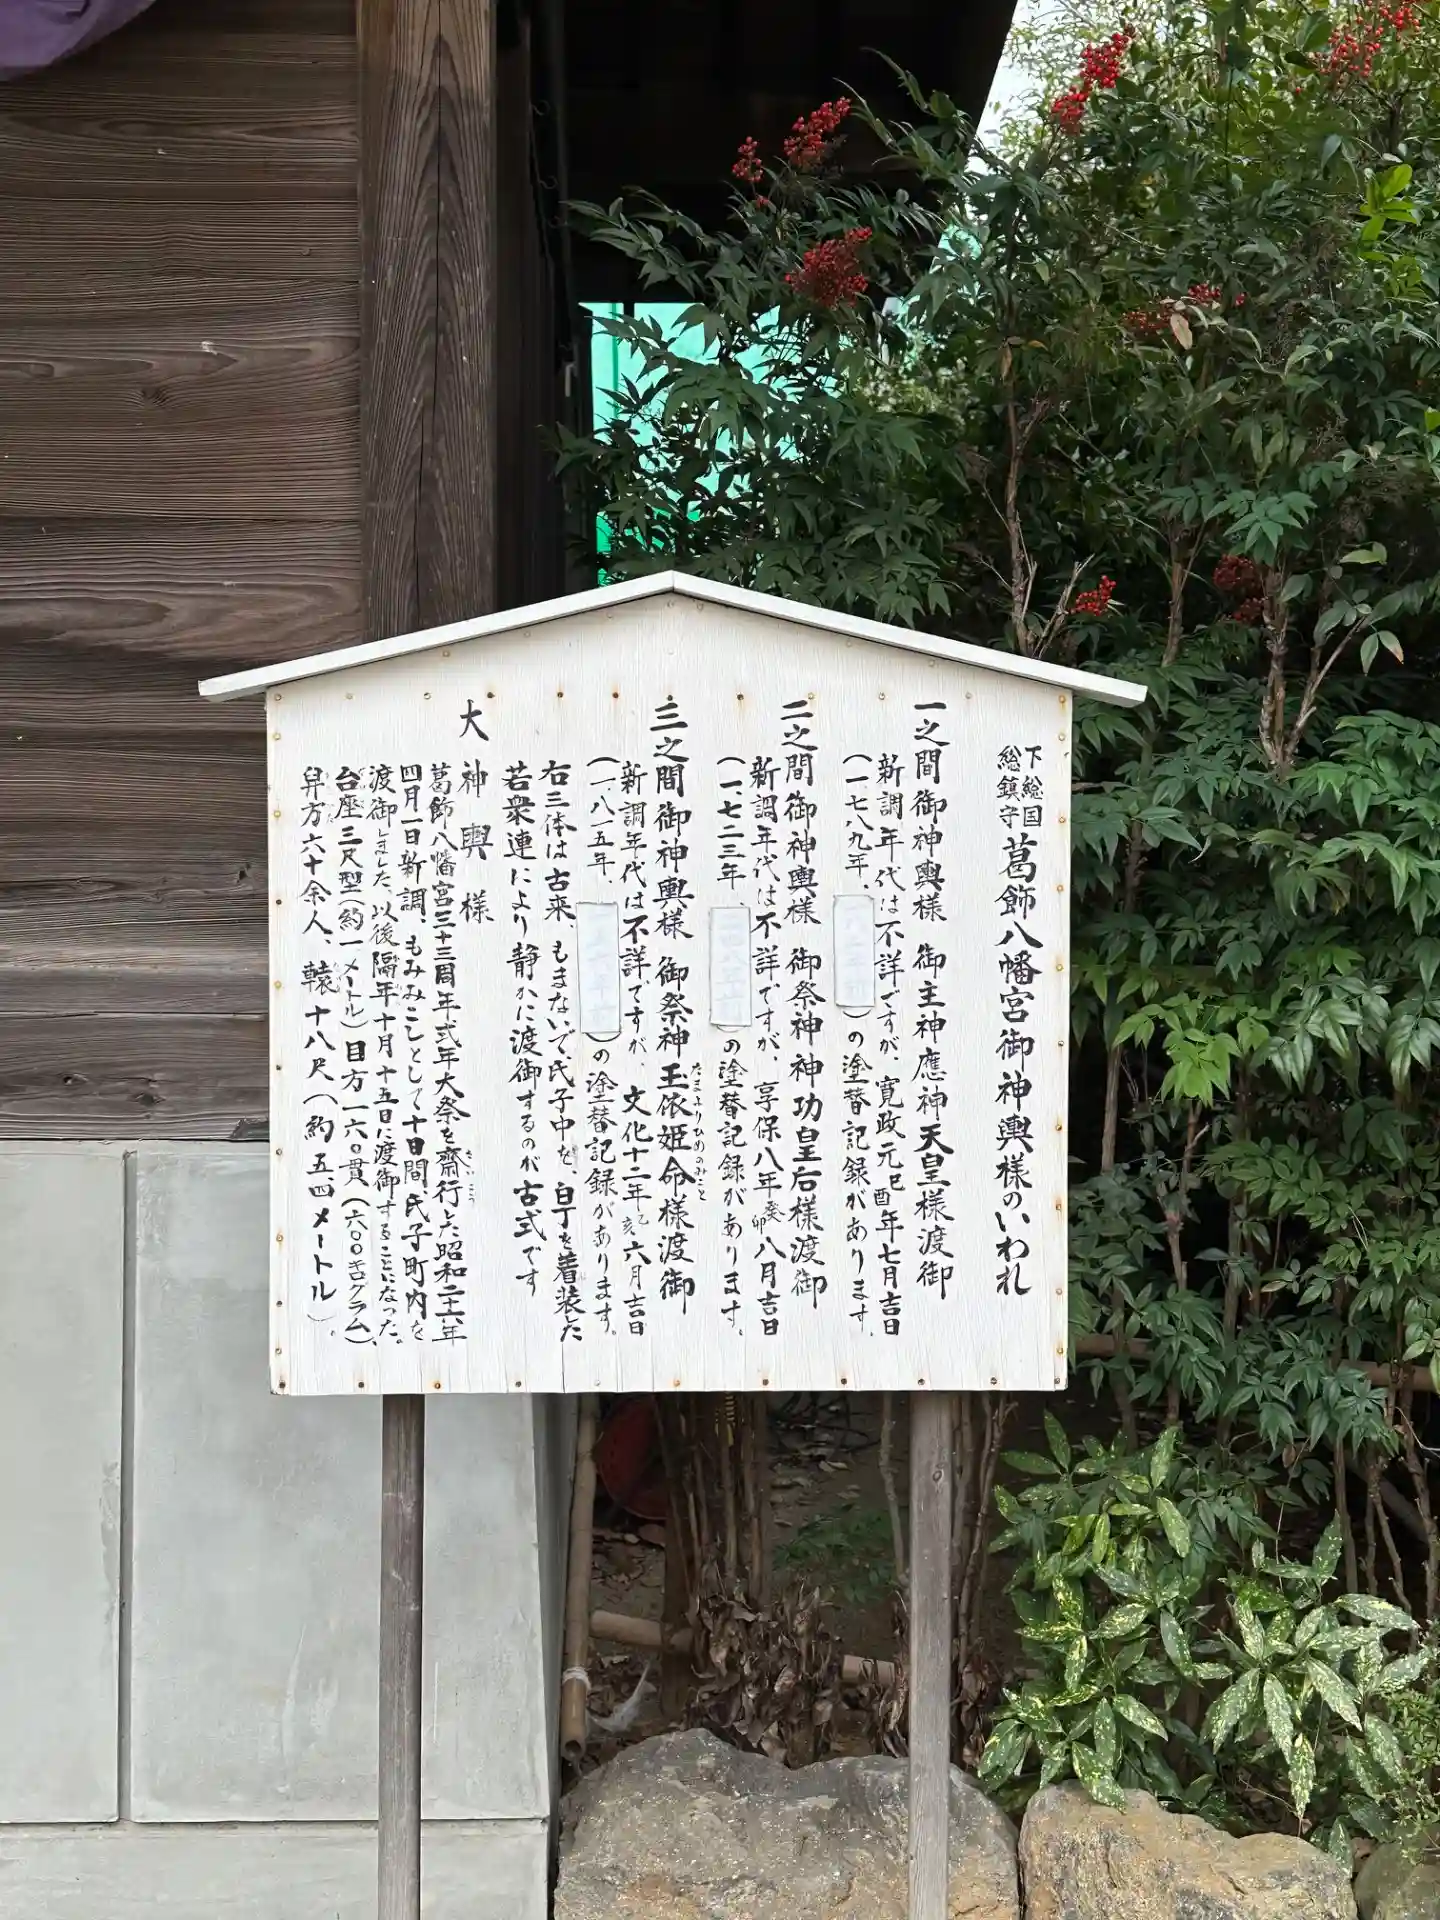 下総国
総鎮守
葛飾八幡宮御神輿様のいわれ
一之間御神輿様 御主神應神天皇様渡御
新調年代は不詳ですが、寛政元己酉年七月吉日
(一、七八九年、)の塗替記録があります。
二之間御神輿様 御祭神神功皇后様渡御
新調年代は不詳ですが、享保八年癸卯八月吉日
(一、七二三年、)の塗替記録があります。
三之間御神輿様 御祭神玉依姫命様渡御
たまよりひめのみこと
新調年代は不詳ですが、文化十二年乙亥六月吉日
(一、八一五年、)の塗替記録があります。
右三体は古来、もまないで、氏子中を、白丁を着装した
若衆連により静かに渡御するのが古式です
大神輿様
葛飾八幡宮三十三周年式年大祭を齋行した昭和二十六年
四月一日新調、もみみこしとして十日間、氏子町内を
渡御しました、以後隔年十月十五日に渡御することになった。
台座三尺型(約一メートル)目方一六〇貫(六〇〇キログラム)、
舁方六十余人、轅十八尺(約五、四メートル)。